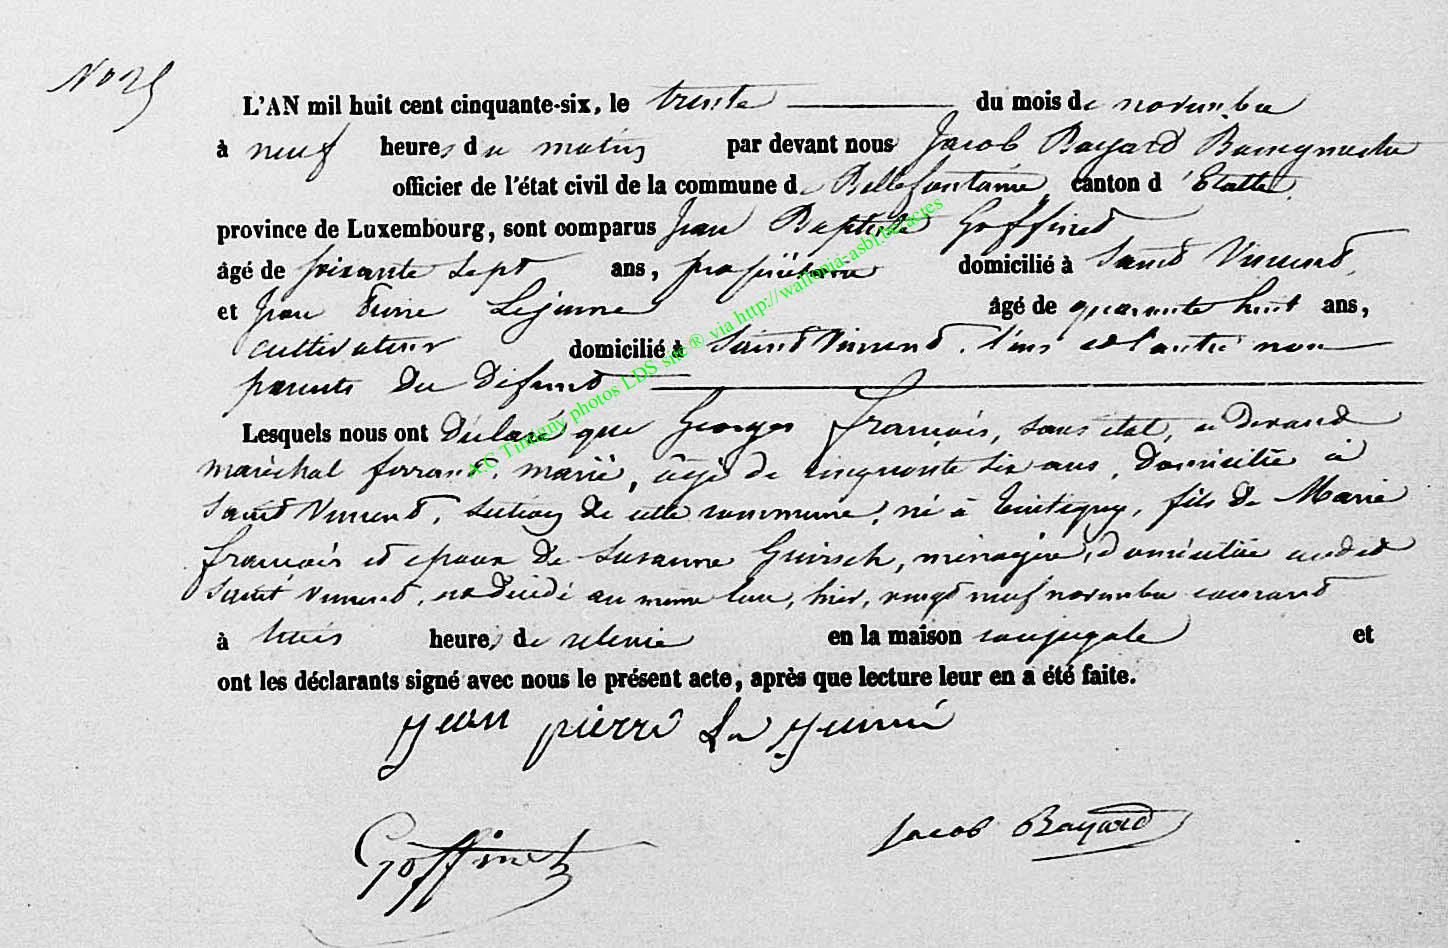 No 25
L'AN mil huit cent cinquante-six, le trente du mois de novembre
à neuf heures du matin par devant nous Jacob Bayard Bourgmestre
officier de l'état civil de la commune de Bellefontaine, canton d'Etalle,
province de Luxembourg, sont comparus Jean Baptiste Goffinet
âgé de soixante sept ans, propriétaire domicilié à Saint Vincent,
et Jean Pierre Lejeune âgé de quarante huit ans,
cultivateur domicilié à Saint Vincent, l'un et l'autre non
parents du défunt
Lesquels nous ont déclaré que Georges François, sans état, ci devant
maréchal ferrant, marié, âgé de cinquante six ans, domicilié à
Saint Vincent, section de cette commune, né à Tintigny, fils de Marie
François et époux de Susanne Guirsch, ménagère, domiciliée audit
Saint Vincent, est décédé au même lieu, hier, vingt neuf novembre courant
à heures de relevée en la maison conjugale et
ont les déclarants signé avec nous le présent acte, après que lecture leur en a été faite.
Jean pierre La Jeune
Goffinet
Jacob Bayard
A.G Tintigny photos LDS site ® via http://wallonia-asbl.be/actes